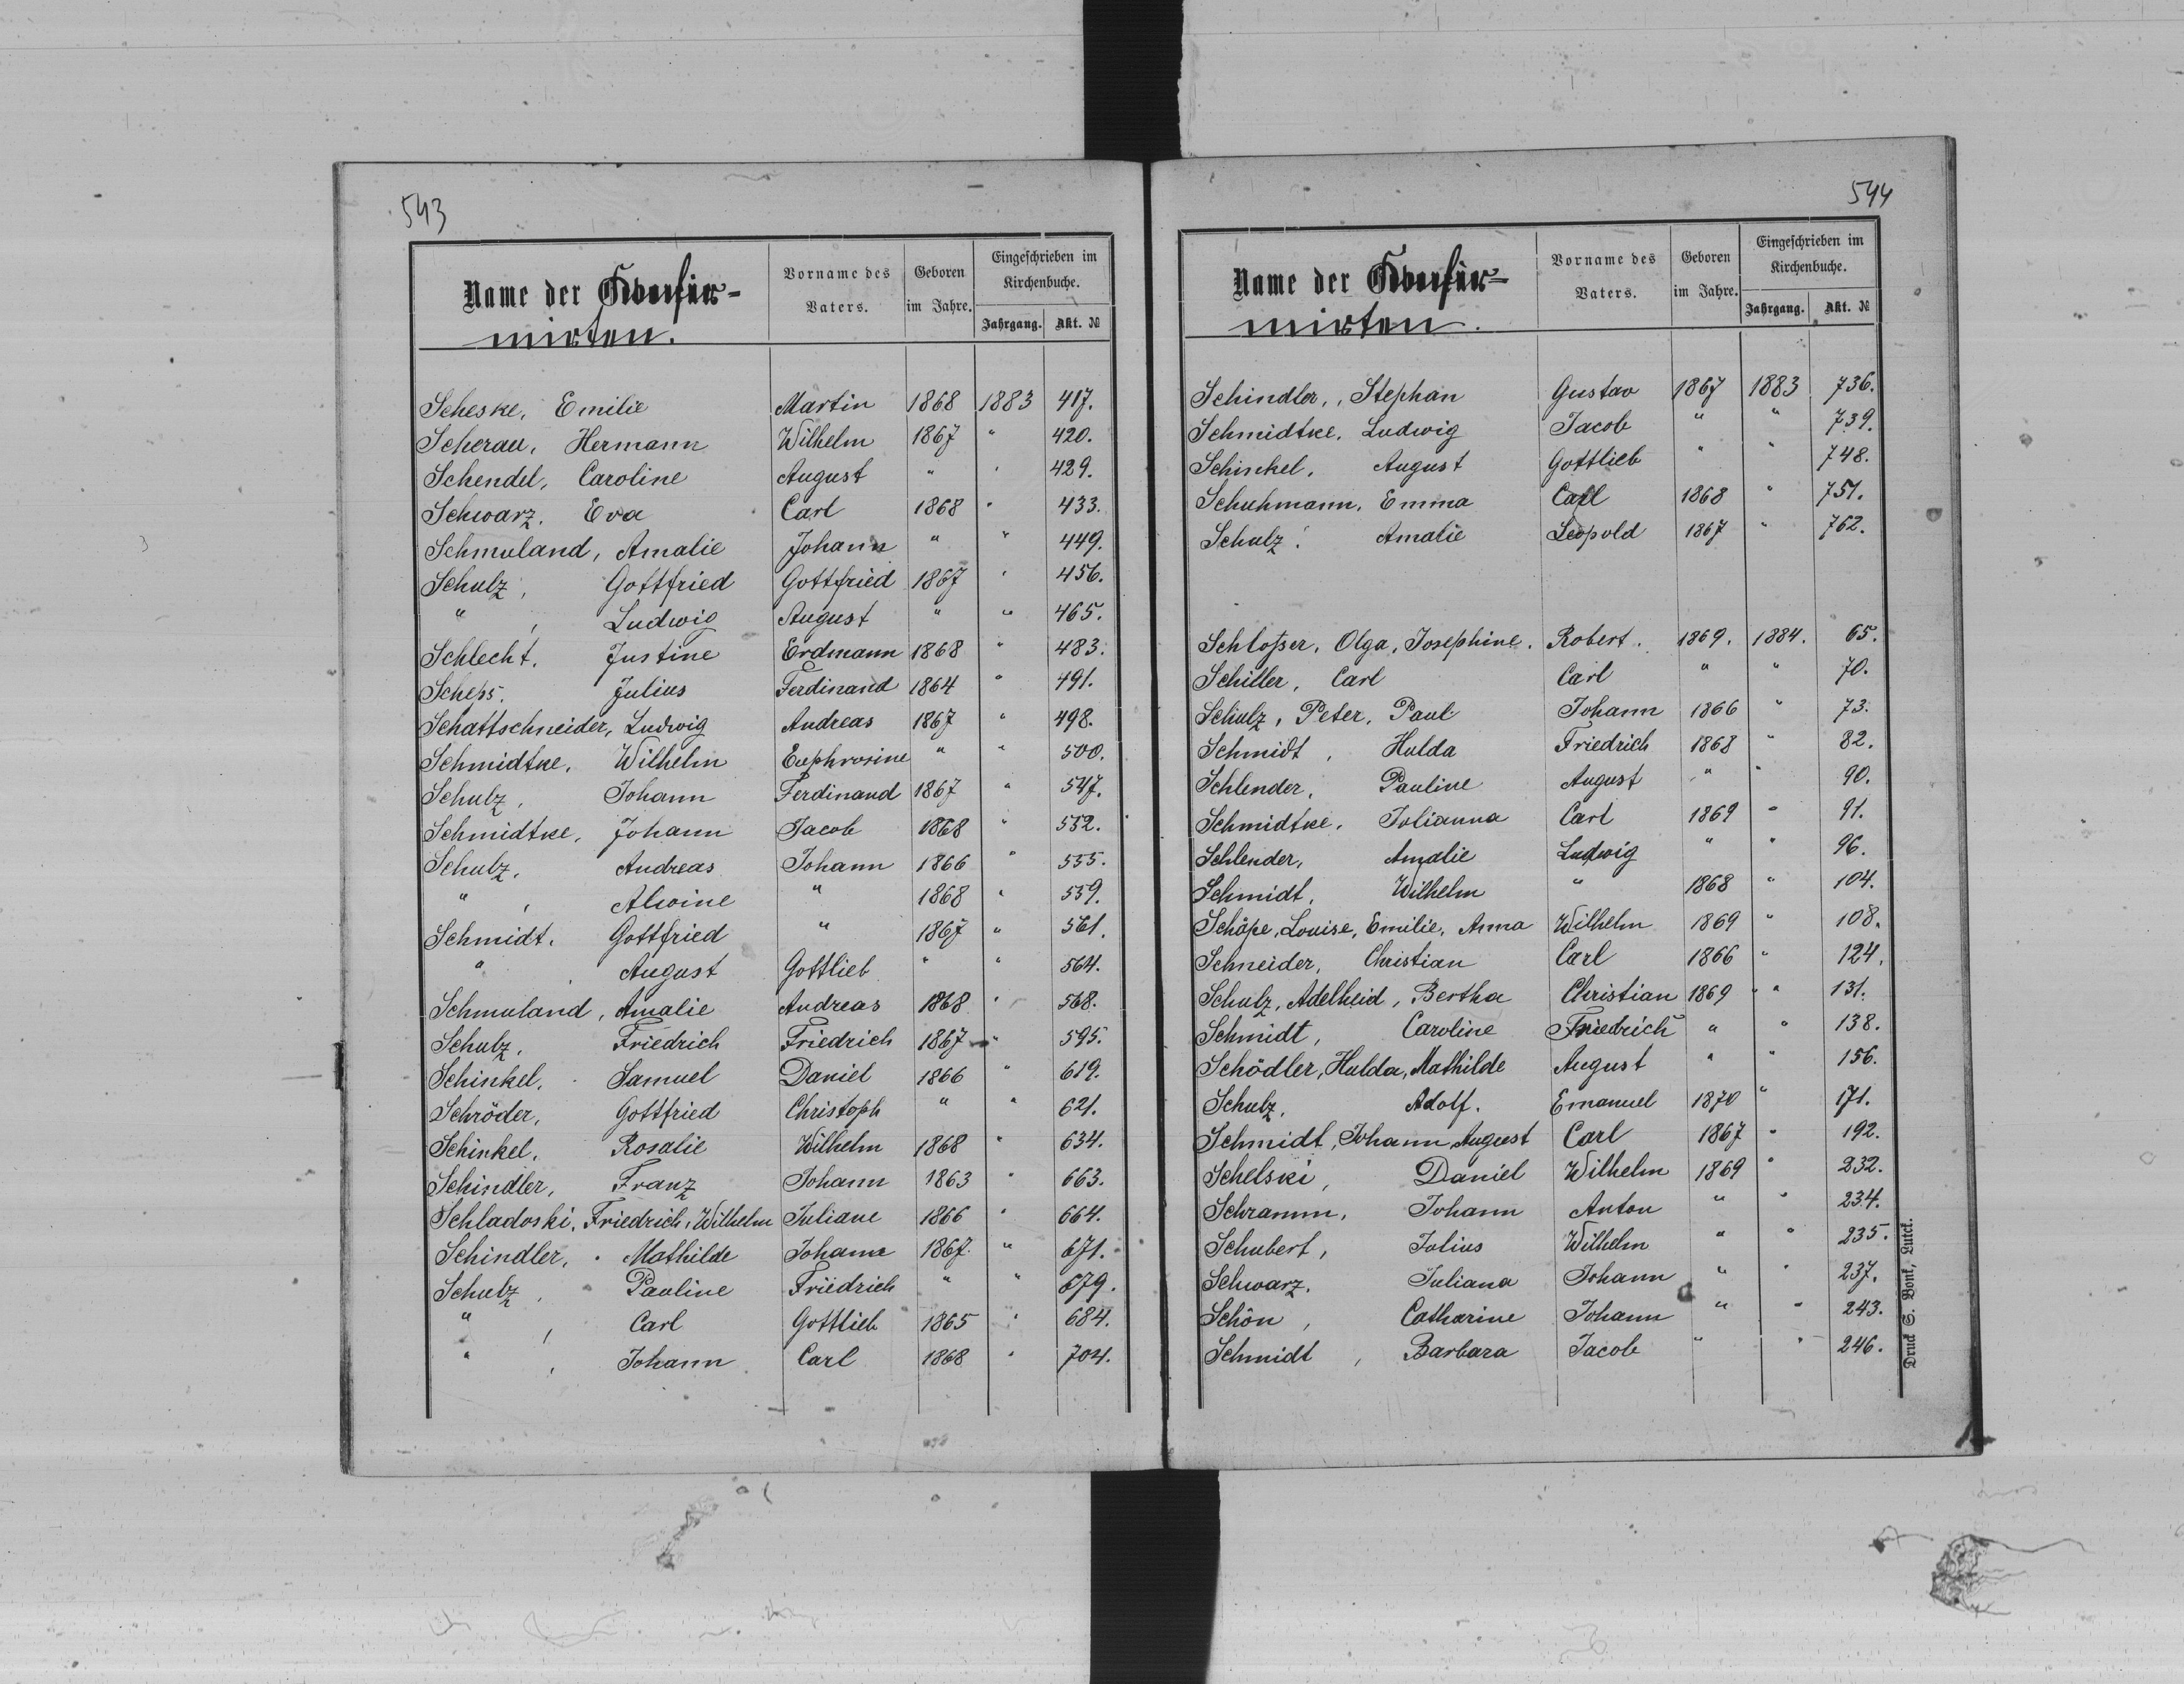 543
Name der Confir-
mirten.
Vorname des Vaters.
Geboren im Jahre.
Eingeschrieben im Kirchenbuche.
Jahrgang. Akt. №
Scheske, Emilie Martin 1868 1883 417.
Scherau, Hermann Wilhelm 1867 " 420.
Schendel, Caroline August " " 429.
Schwarz, Eva Carl 1868 " 433.
Schmuland, Amalie Johann " " 449.
Schulz, Gottfried Gottfried 1867 " 456.
" , Ludwig August " " 465.
Schlecht, Justine Erdmann 1868 " 483.
Scheps, Julius Ferdinand 1864 " 491.
Schattschneider, Ludwig Andreas 1867 " 498.
Schmidtke, Wilhelm Euphrosine " " 500.
Schulz, Johann Ferdinand 1867 " 547.
Schmidtke, Johann Jacob 1868 " 552.
Schulz, Andreas Johann 1866 " 555.
" , Alwine " 1868 " 559.
Schmidt, Gottfried " 1867 " 561.
" , August Gottlieb " " 564.
Schmuland, Amalie Andreas 1868 " 568.
Schulz, Friedrich Friedrich 1867 " 595.
Schinkel, Samuel Daniel 1866 " 619.
Schröder, Gottfried Christoph " " 621.
Schinkel, Rosalie Wilhelm 1868 " 634.
Schindler, Franz Johann 1863 " 663.
Schladoski, Friedrich, Wilhelm Juliane 1866 " 664.
Schindler, Mathilde Johann 1867. " 671.
Schulz, Pauline Friedrich " " 679.
" , Carl Gottlieb 1865 " 684.
" , Johann Carl 1868 " 704.
544
Name der Confir-
mirten.
Vorname des Vaters.
Geboren im Jahre.
Eingeschrieben im Kirchenbuche.
Jahrgang. Akt. №
Schindler, Stephan Gustav 1867 1883 736.
Schmidtke, Ludwig Jacob " " 739.
Schinkel, August Gottlieb " " 748.
Schuhmann, Emma Carl 1868 " 751.
Schulz, Amalie Leopold 1867 " 762.
Schloßer, Olga, Josephine. Robert. 1869. 1884. 65.
Schiller, Carl Carl " " 70.
Schulz, Peter, Paul Johann 1866 " 73.
Schmidt, Hulda Friedrich 1868 " 82.
Schlender, Pauline August " " 90.
Schmidtke, Julianna Carl 1869 " 91.
Schlender, Amalie Ludwig " " 96.
Schmidt, Wilhelm " 1868 " 104.
Schöpe, Louise, Emilie, Anna Wilhelm 1869 " 108.
Schneider, Christian Carl 1866 " 124.
Schulz, Adelheid, Bertha Christian 1869 " 131.
Schmidt, Caroline Friedrich " " 138.
Schödler, Hulda, Mathilde August " " 156.
Schulz, Adolf. Emanuel 1870 " 171.
Schmidt, Johann August Carl 1867 " 192.
Schelski, Daniel Wilhelm 1869 " 232.
Schramm, Johann Anton " " 234.
Schubert, Julius Wilhelm " " 235.
Schwarz, Juliana Johann " " 237.
Schön, Catharine Johann " " 243.
Schmidt, Barbara Jacob " " 246.
Druck S. Bonk, Luck.